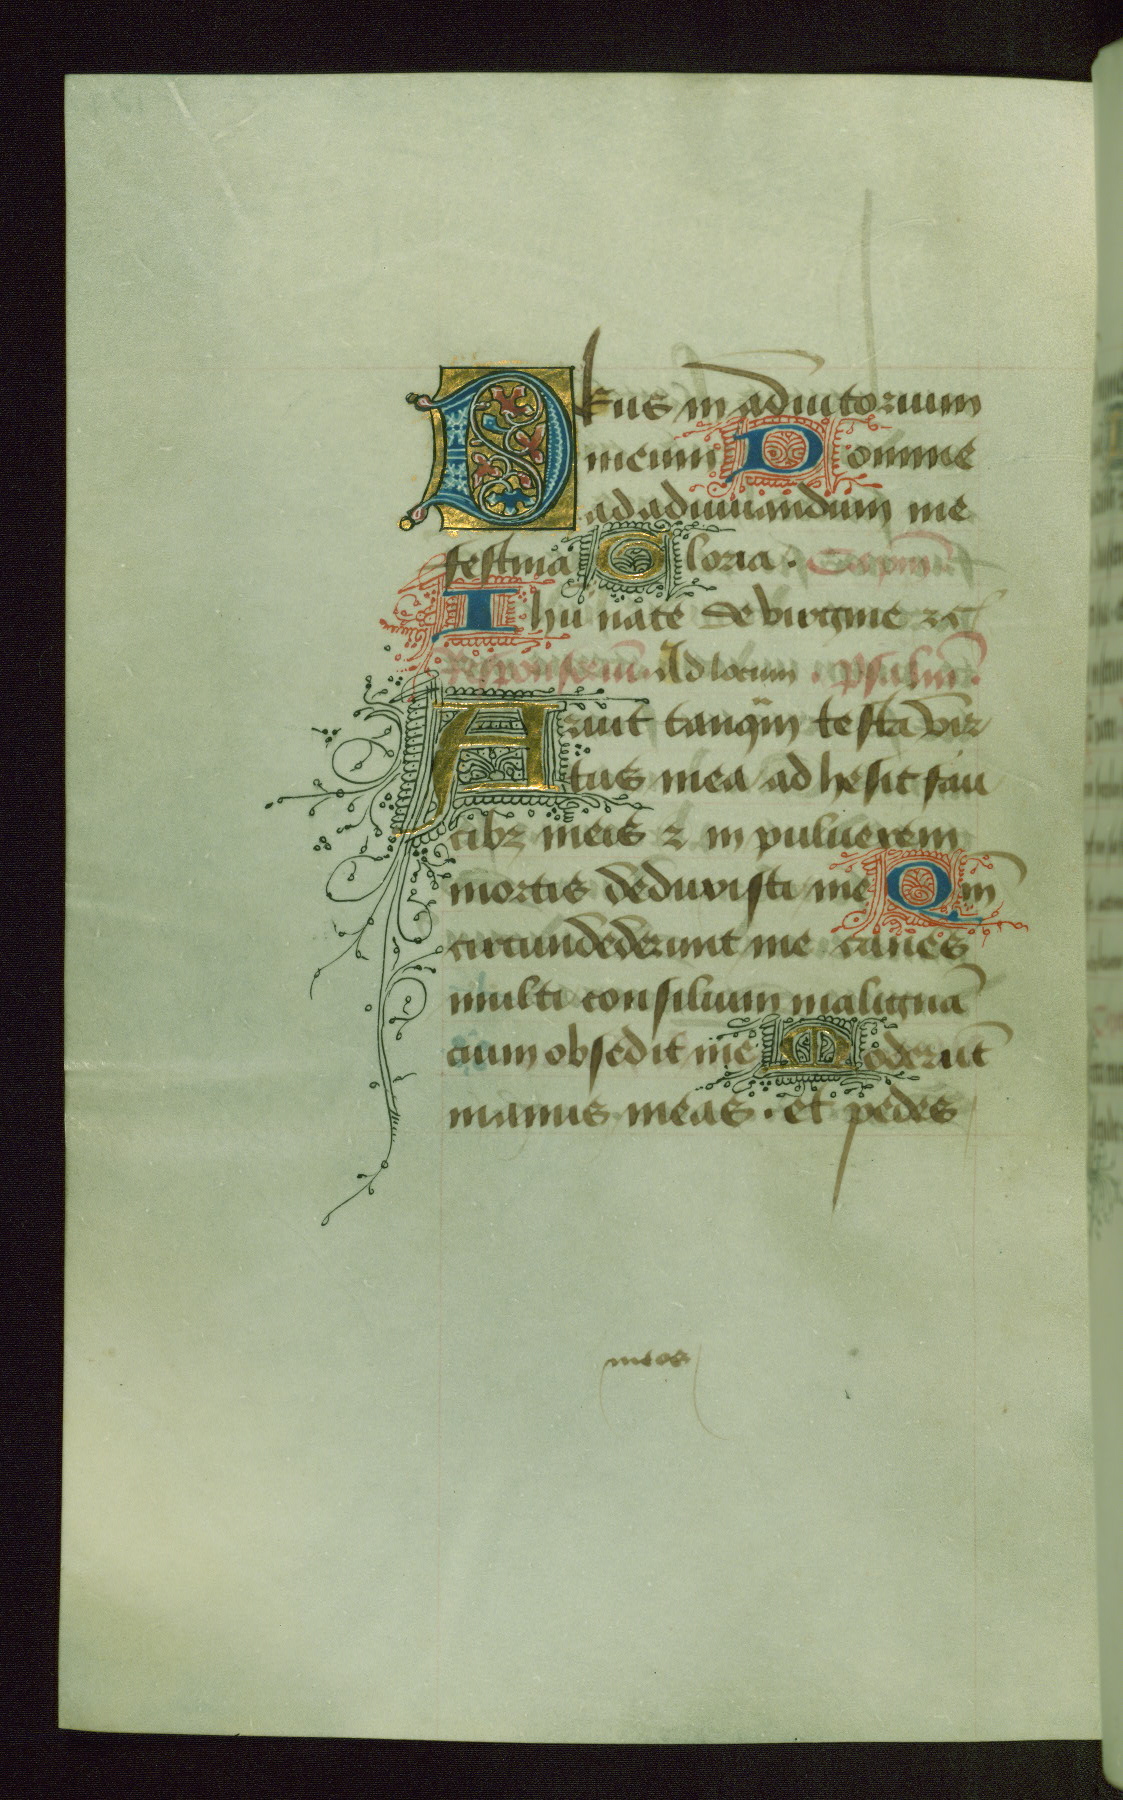 Deus in adiutorium
meum Domine
ad adiuuandum me
festina Gloria .
Ihū nate de virgine ⁊c̄
Responsoriū. Ad locum . Psalmꝰ.
Aruit tanq̄m testa vir
tus mea adhesit fau
cibꝫ meis ⁊ in puluerem
mortis deduxisti me Qm̄
circundederunt me canes
multi consilium malignā
cium obsedit me Moderūt
manus meas . et pedes
meos